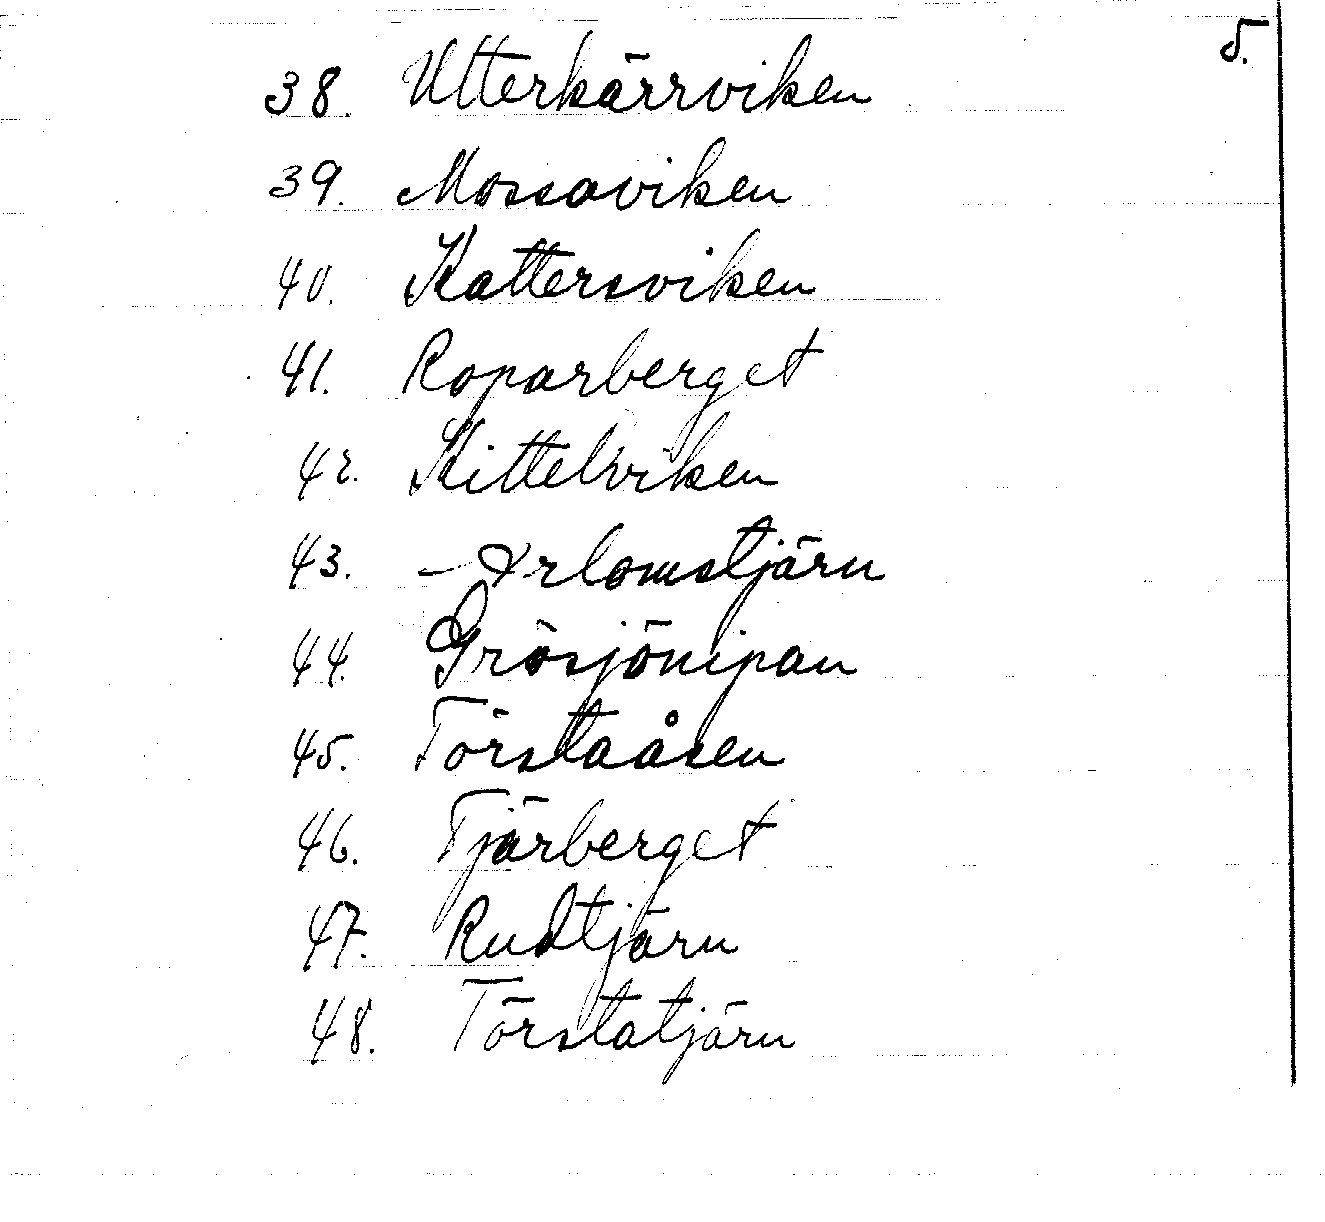 5.
38. Utterkärrviken
39. Mossaviken
40. Kattersviken
41. Roparberget
42. Kittelviken
43.
44. Grösjönipan
45. Törstaåsen
46. Tjärberget
47. Rudtjärn
48. Törstatjärn